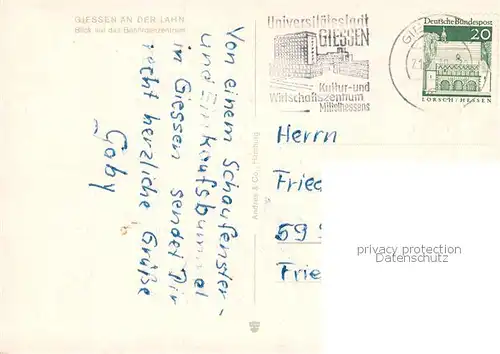 GIESSEN AN DER LAHN
Blick auf das Behördenzentrum
Von einem Schaufenster-
und Einkaufsbummel
in Giessen sendet Dir
recht herzliche Grüße
Gaby
Andres & Co., Hamburg
Universitätsstadt
GIESSEN
Kultur-und
Wirtschaftszentrum
Mittelhessens
Deutsche Bundespost
20
LORSCH/HESSEN
Herrn
Fried
59
Frie
privacy protection
Datenschutz